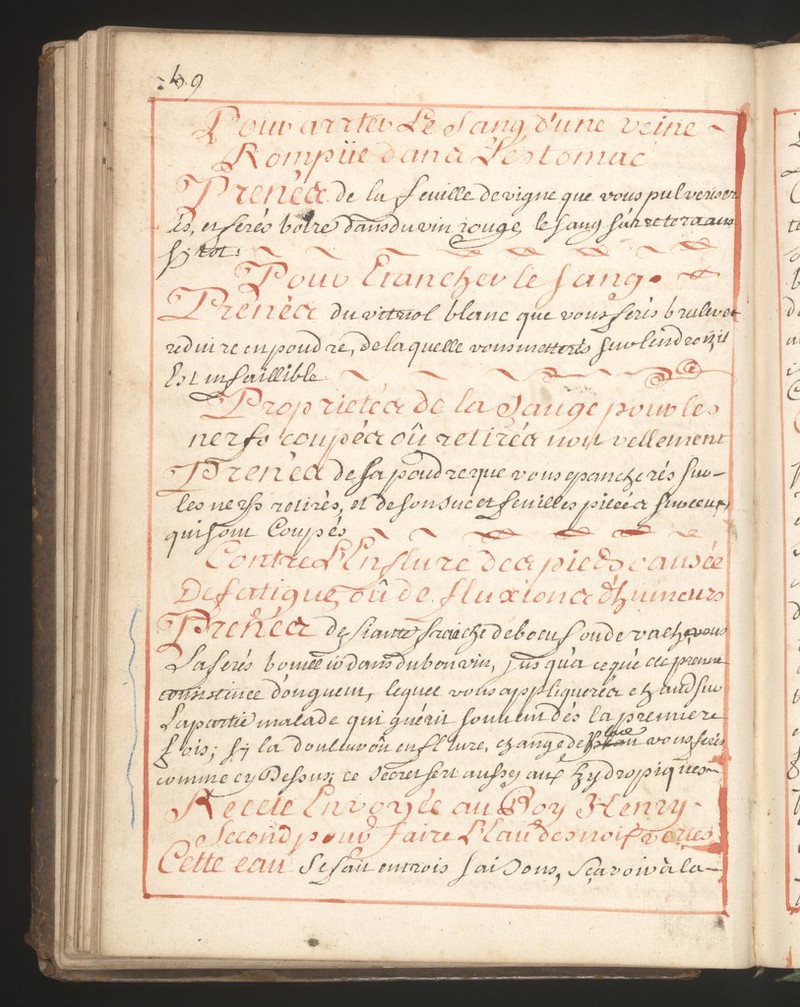 49
Pour arrter Le Sang d'une veine
Rompüe dans L'estomac
Prenéz de la feuille de vigne que vous pulverizer
és, et ferés boire dans du vin rouge, le sang s'arretera aus
sy tôt:
Pour Etancher le sang.
Prenéz du vitriol blanc que vous ferés bruler et
reduire en poudre, de la quelle vous metterés sur lendroit, il
Est infaillible
Proprietéz de la Sauge pour les
nerfs coupéz oû retiréz nouvellement
Prenéz de sa poudre que vous epancherés sur
les nerfs retirés, et de son suc et feuilles piléez sur ceux
qui sont Coupés
Contre L'Enflure des pieds causée
De fatigue oû de fluxions d'humeurs
Prenéz de fiante fraiche de boeuf ou de vache, vous
La ferés bouillir dans du bon vin, jus qu'a ce que elle prenne
consistance d'onguent, lequel vous appliqueréz chaud sur
La partie malade qui guérit souvent dés la premiere
fois; sy la douleur oû enflure, change de place vous ferés
comme cy Dessus; ce Secret sert aussy aux hydropiques
Recete Envoyée au Roy Henry
Second pour faire L'Eau de noix vertes
Cette eau Se fait en trois saisons, Sçavoir à la